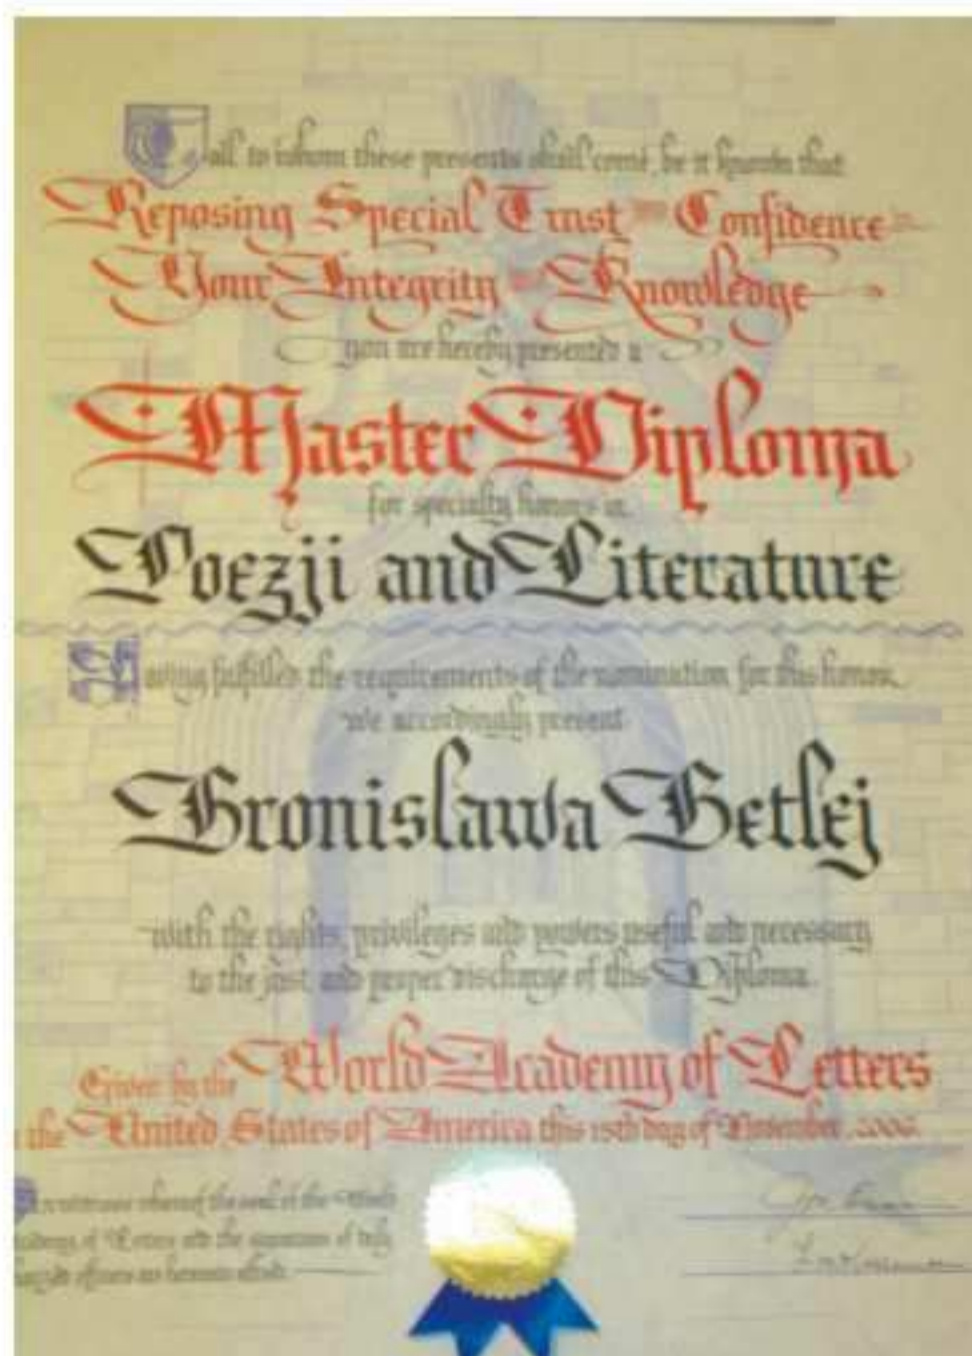 To all to whom these presents shall come, be it known that
Reposing Special Trust and Confidence in
Your Integrity and Knowledge
you are hereby presented a
Master Diploma
for specialty honors in
Poezji and Literature
Having fulfilled the requirements of the nomination for this honor,
we accordingly present
Bronislawa Betlej
with the rights, privileges and powers useful and necessary
to the just and proper discharge of this Diploma.
Given by the World Academy of Letters
the United States of America this 15th day of November, 2006
In witness whereof the seal of the World
of Letters and the signature of duly
officers are hereunto affixed.